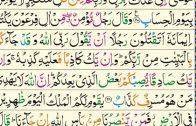 وْمِ الْحِسَابِ ۞ وَقَالَ رَجُلٌ مُّؤْمِنٌ مِّنْ اٰلِ فِرْعَوْنَ
اِيْمَانَهٗۤ اَتَقْتُلُوْنَ رَجُلًا اَنْ يَّقُوْلَ رَبِّيَ اللّٰهُ وَقَدْ جَآءَ
بِالْبَيِّنٰتِ مِنْ رَّبِّكُمْ ؕ وَاِنْ يَّكُ كَاذِبًا فَعَلَيْهِ كَذِبُهٗ ۚ وَاِنْ
يَّكُ صَادِقًا يُّصِبْكُمْ بَعْضُ الَّذِيْ يَعِدُكُمْ ؕ اِنَّ اللّٰهَ لَا
مَنْ هُوَ مُسْرِفٌ كَذَّابٌ ۞ يٰقَوْمِ لَكُمُ الْمُلْكُ الْيَوْمَ ظٰهِرِيْنَ